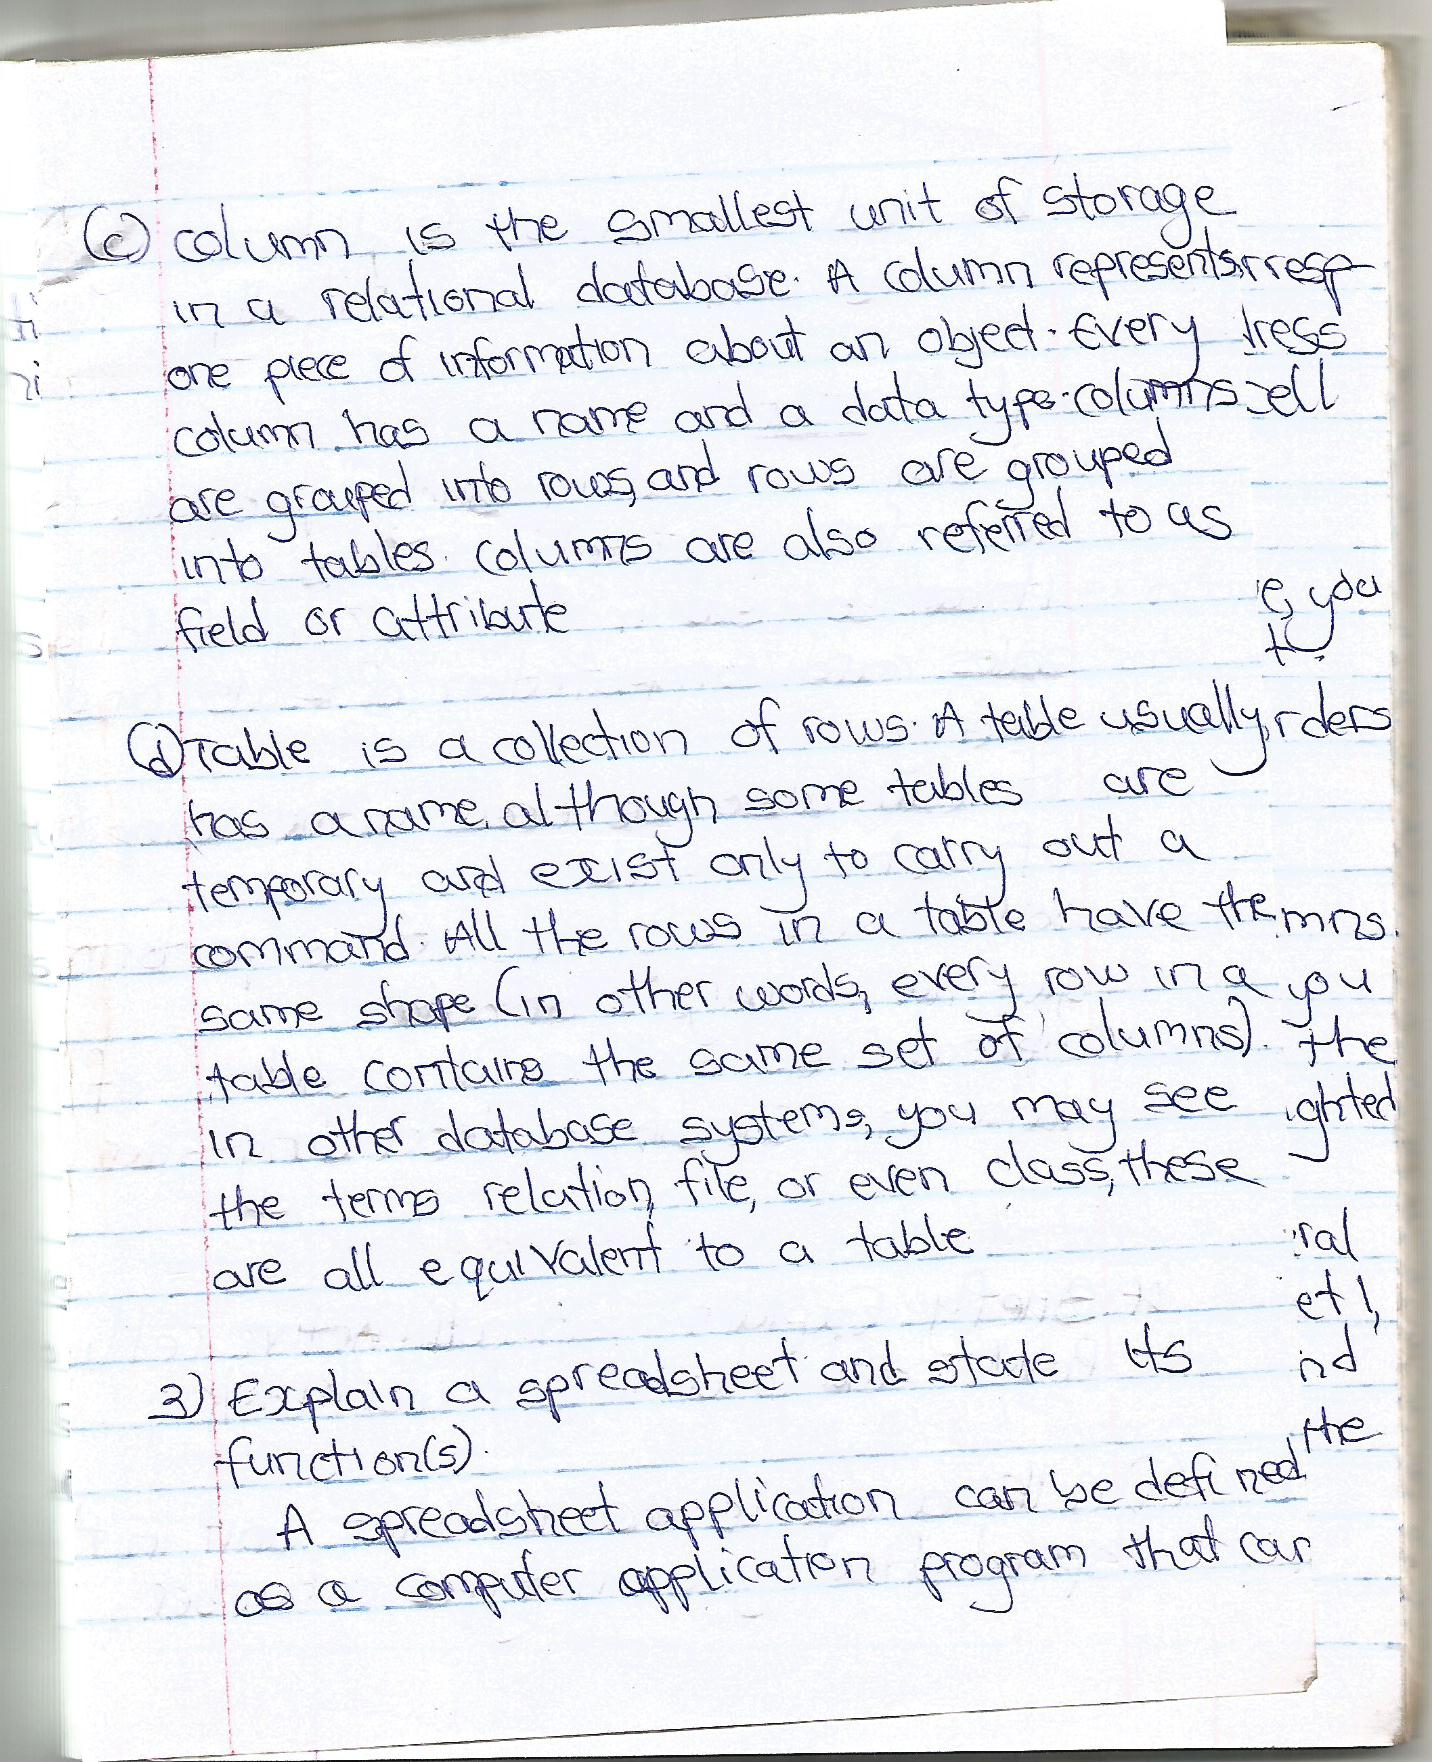 (c) column is the smallest unit of storage
in a relational database. A column represents rresp
one piece of information about an object. Every ress
column has a name and a data type. columns ell
are grouped into rows, and rows are grouped
into tables. Columns are also referred to as
field or attribute
e, you
t.
(d) Table is a collection of rows. A table usually, rders
has a name, although some tables are
temporary and exist only to carry out a
command. All the rows in a table have the mns.
same shape (in other words, every row in a you
table contains the same set of columns). the
in other database systems, you may see ighted
the terms relation, file, or even class, these
are all equivalent to a table
ral
et 1,
3) Explain a spreadsheet and state its nd
function(s).
the
A spreadsheet application can be defined
as a computer application program that can